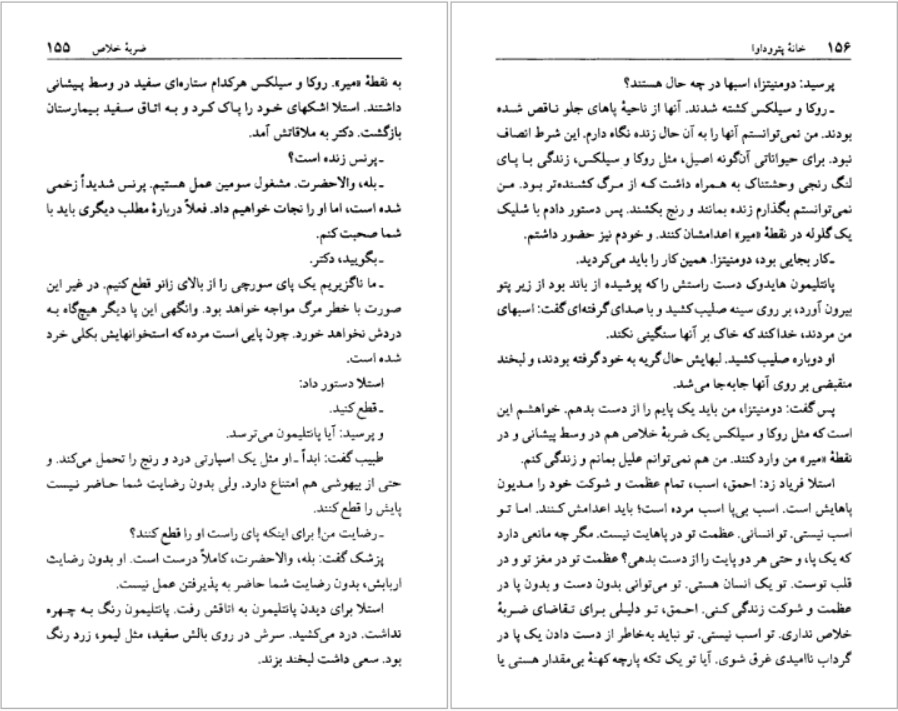 ضربهٔ خلاص ۱۵۵
به نقطهٔ «میر». روکا و سیلکس هرکدام ستاره‌ای سفید در وسط پیشانی
داشتند. استلا اشکهای خود را پاک کرد و به اتاق سفید بیمارستان
بازگشت. دکتر به ملاقاتش آمد.
ـ پرنس زنده است؟
ـ بله، والاحضرت. مشغول سومین عمل هستیم. پرنس شدیداً زخمی
شده است، اما او را نجات خواهیم داد. فعلاً دربارهٔ مطلب دیگری باید با
شما صحبت کنم.
ـ بگویید، دکتر.
ـ ما ناگزیریم یک پای سورچی را از بالای زانو قطع کنیم. در غیر این
صورت با خطر مرگ مواجه خواهد بود. وانگهی این پا دیگر هیچ‌گاه به
دردش نخواهد خورد. چون پایی است مرده که استخوانهایش بکلی خرد
شده است.
استلا دستور داد:
ـ قطع کنید.
و پرسید: آیا پانتلیمون می‌ترسد.
طبیب گفت: ابداً ـ او مثل یک اسپارتی درد و رنج را تحمل می‌کند. و
حتی از بیهوشی هم امتناع دارد. ولی بدون رضایت شما حاضر نیست
پایش را قطع کنند.
ـ رضایت من! برای اینکه پای راست او را قطع کنند؟
پزشک گفت: بله، والاحضرت، کاملاً درست است. او بدون رضایت
اربابش، بدون رضایت شما حاضر به پذیرفتن عمل نیست.
استلا برای دیدن پانتلیمون به اتاقش رفت. پانتلیمون رنگ به چهره
نداشت. درد می‌کشید. سرش در روی بالش سفید، مثل لیمو، زرد رنگ
بود. سعی داشت لبخند بزند.
۱۵۶ خانهٔ پتروداوا
پرسید: دومنیتزا، اسبها در چه حال هستند؟
ـ روکا و سیلکس کشته شدند. آنها از ناحیهٔ پاهای جلو ناقص شده
بودند. من نمی‌توانستم آنها را به آن حال زنده نگاه دارم. این شرط انصاف
نبود. برای حیواناتی آن‌گونه اصیل، مثل روکا و سیلکس، زندگی با پای
لنگ رنجی وحشتناک به همراه داشت که از مرگ کشنده‌تر بود. من
نمی‌توانستم بگذارم زنده بمانند و رنج بکشند. پس دستور دادم با شلیک
یک گلوله در نقطهٔ «میر» اعدامشان کنند. و خودم نیز حضور داشتم.
ـ کار بجایی بود، دومنیتزا. همین کار را باید می‌کردید.
پانتلیمون هایدوک دست راستش را که پوشیده از باند بود از زیر پتو
بیرون آورد، بر روی سینه صلیب کشید و با صدای گرفته‌ای گفت: اسبهای
من مردند، خدا کند که خاک بر آنها سنگینی نکند.
او دوباره صلیب کشید. لبهایش حال گریه به خود گرفته بودند، و لبخند
منقبضی بر روی آنها جابه‌جا می‌شد.
پس گفت: دومنیتزا، من باید یک پایم را از دست بدهم. خواهشم این
است که مثل روکا و سیلکس یک ضربهٔ خلاص هم در وسط پیشانی و در
نقطهٔ «میر» من وارد کنند. من هم نمی‌توانم علیل بمانم و زندگی کنم.
استلا فریاد زد: احمق، اسب، تمام عظمت و شوکت خود را مدیون
پاهایش است. اسب بی‌پا اسب مرده است؛ باید اعدامش کنند. اما تو
اسب نیستی. تو انسانی. عظمت تو در پاهایت نیست. مگر چه مانعی دارد
که یک پا، و حتی هر دو پایت را از دست بدهی؟ عظمت تو در مغز تو و در
قلب توست. تو یک انسان هستی. تو می‌توانی بدون دست و بدون پا در
عظمت و شوکت زندگی کنی. احمق، تو دلیلی برای تقاضای ضربهٔ
خلاص نداری. تو اسب نیستی. تو نباید به‌خاطر از دست دادن یک پا در
گرداب ناامیدی غرق شوی. آیا تو یک تکه پارچه کهنهٔ بی‌مقدار هستی یا